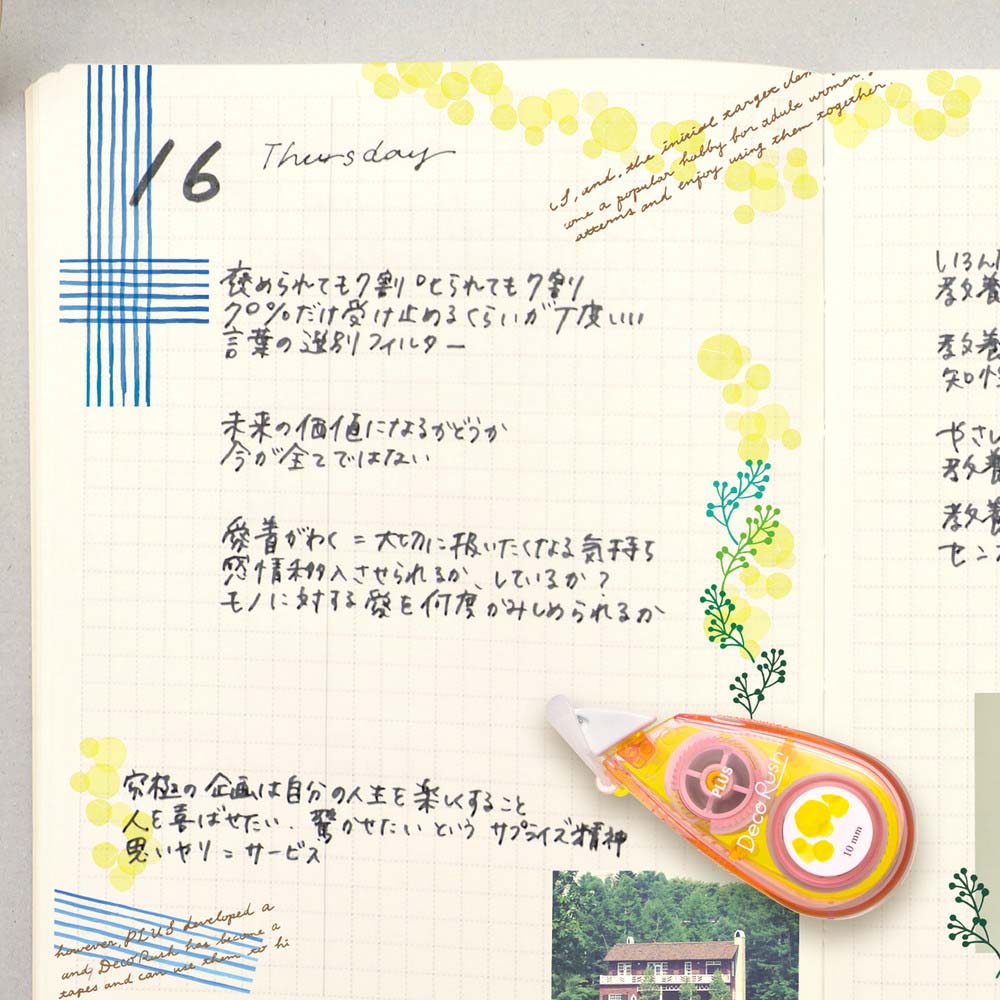 16 Thursday
is, and, the initial target dem
ome a popular hobby for adult women,
atterns and enjoy using them together.
褒められても7割 叱られても7割
70%だけ受け止めるくらいが丁度いい
言葉の選別フィルター
未来の価値になるかどうか
今が全てではない
愛着がわく=大切に扱いたくなる気持ち
感情移入させられるか、しているか?
モノに対する愛を何度かみしめられるか
究極の企画は自分の人生を楽しくすること
人を喜ばせたい、驚かせたいという サプライズ精神
思いヤリ=サービス
however, PLUS developed a
and, Deco Rush has become a
tapes and can use them to hi
PLUS
Deco Rush
10 mm
いろん
教養
教養
知性
やさし
教養
教養
セン